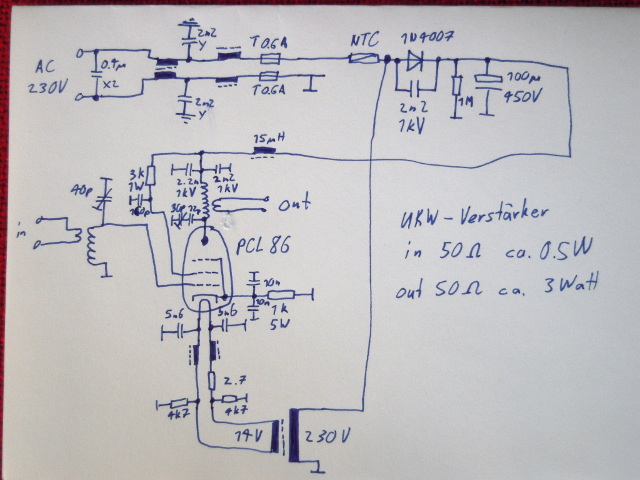 2n2
Y
T0.6A
NTC
1N4007
AC
230V
0.1µ
X2
T0.6A
2n2
Y
2n2
1kV
1M
100µ
450V
15µH
3k
1W
2.2n
1kV
2n2
1kV
40p
out
in
PCL86
UKW-Verstärker
in 50Ω ca. 0.5W
out 50Ω ca. 3Watt
10n
10n
1k
5W
5n6
5n6
2.7
4k7
4k7
14V
230V